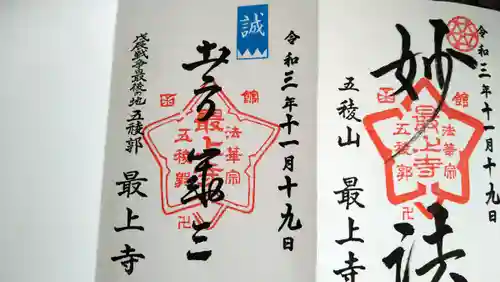 令和三年十一月十九日
妙法
五稜山 最上寺
函館
法華宗
最上寺
五稜郭
令和三年十一月十九日
誠
土方歳三
函館
法華宗
最上寺
五稜郭
卍
戊辰戦争最後の地 五稜郭 最上寺